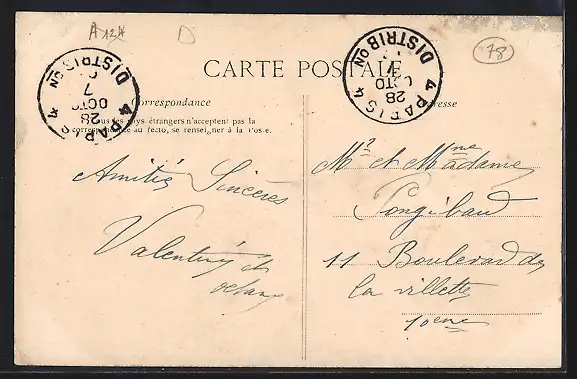 A 12A
D
78
CARTE POSTALE
Correspondance
Tous les pays étrangers n'acceptent pas la
correspondance au recto, se renseigner à la Poste.
Adresse
PARIS 4 DISTRIBON
7
OCTO
28
PARIS 4 DISTRIBON
OCTO
28
Amitiés Sincères
Valentin
Mr et Madame
Pongibaud
11 Boulevard de
la villette
10eme